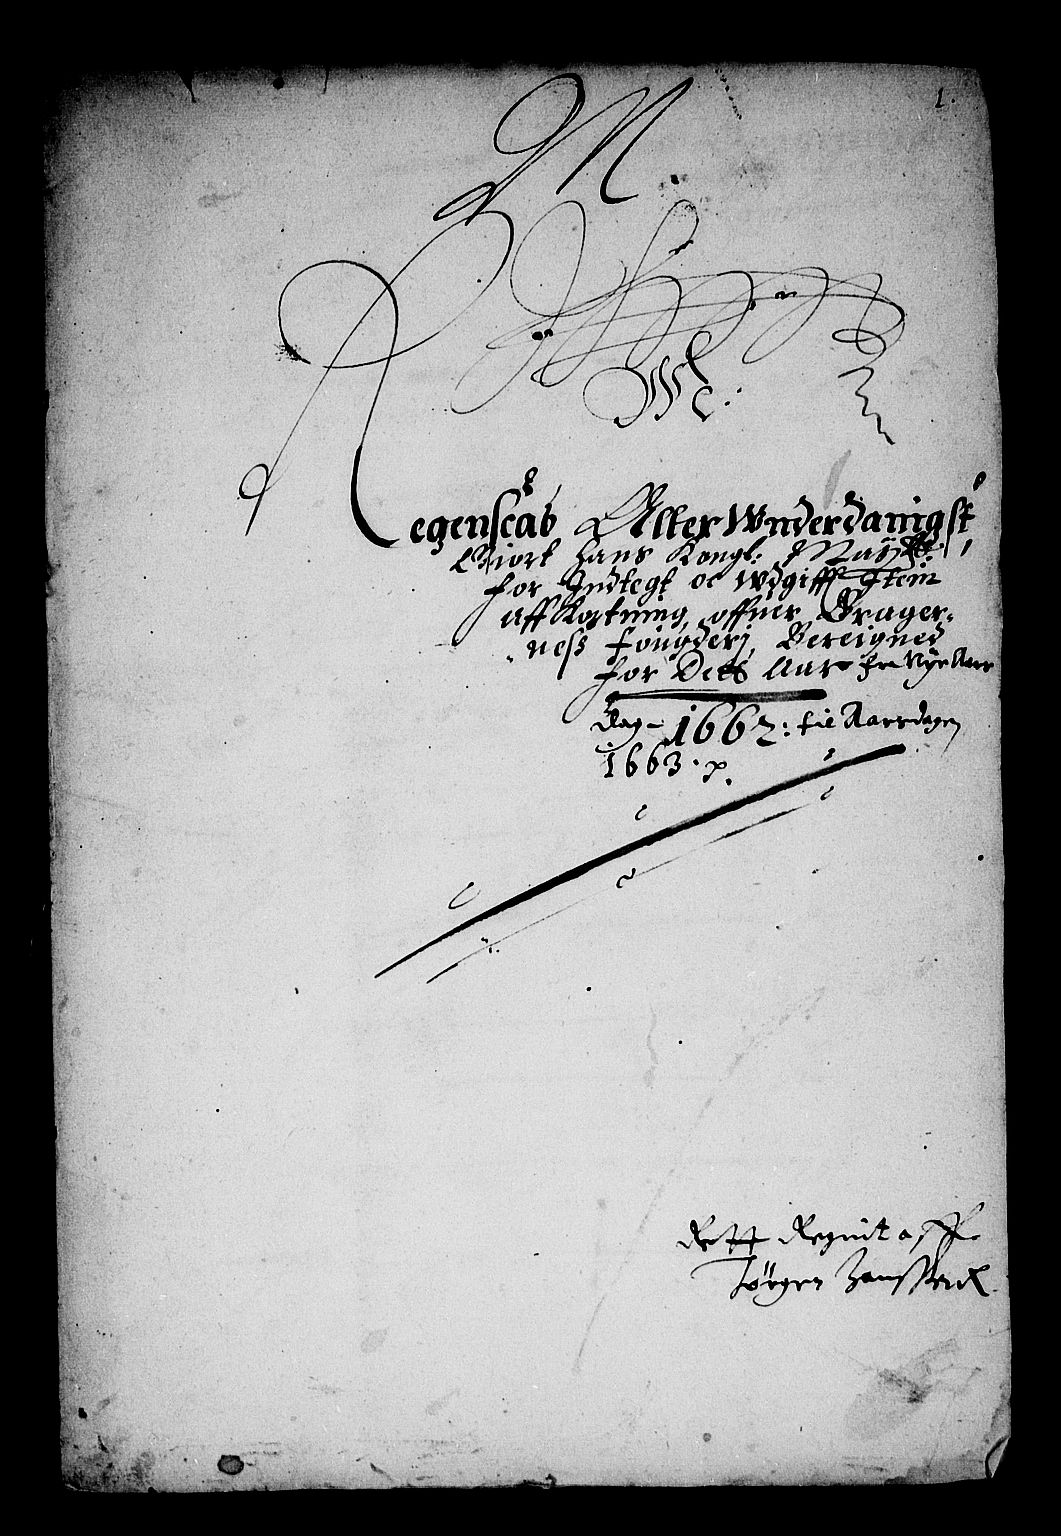 1.
M.
Regenscab Aller Wnderdanigst
Giort Hans Kongl: Maytt:
for Indtegt oc Wdgifft Item
aff Kortning, offuer Brager-
ness Fougderj, Bereigned
for Dets Aar fra Nÿe Aars
Dag 1662: til Aarsdagen
1663. p.
Rett Regnit aff
Jörgen